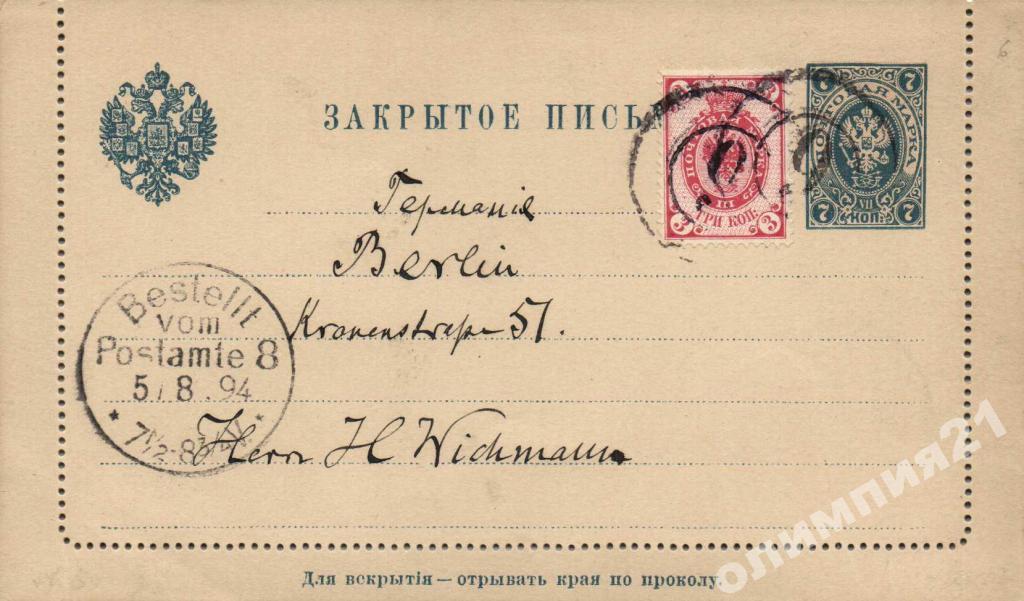 6
7 7
ПОЧТОВАЯ МАРКА
VII
7 КОП. 7
3 ТРИ КОП. 3
III
ЗАКРЫТОЕ ПИСЬ
Германія
Berlin
Kronenstraße 51.
Bestellt
vom
Postamte 8
5/8.94
7½-8¾
Herrn H Wichmann
Для вскрытія — отрывать края по проколу.
олимпия21